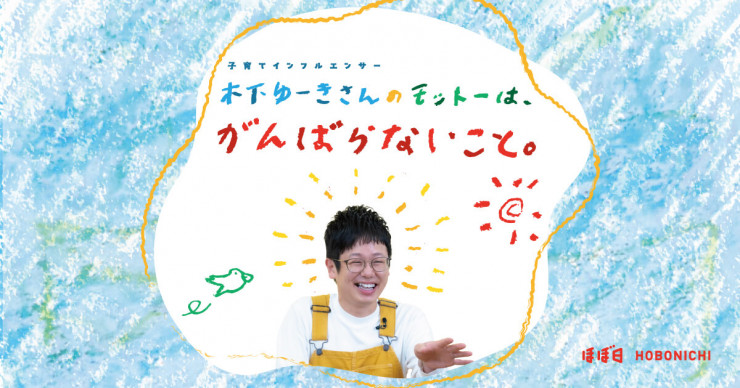 子育てインフルエンサー
木下ゆーきさんのモットーは、
がんばらないこと。
ほぼ日 HOBONICHI